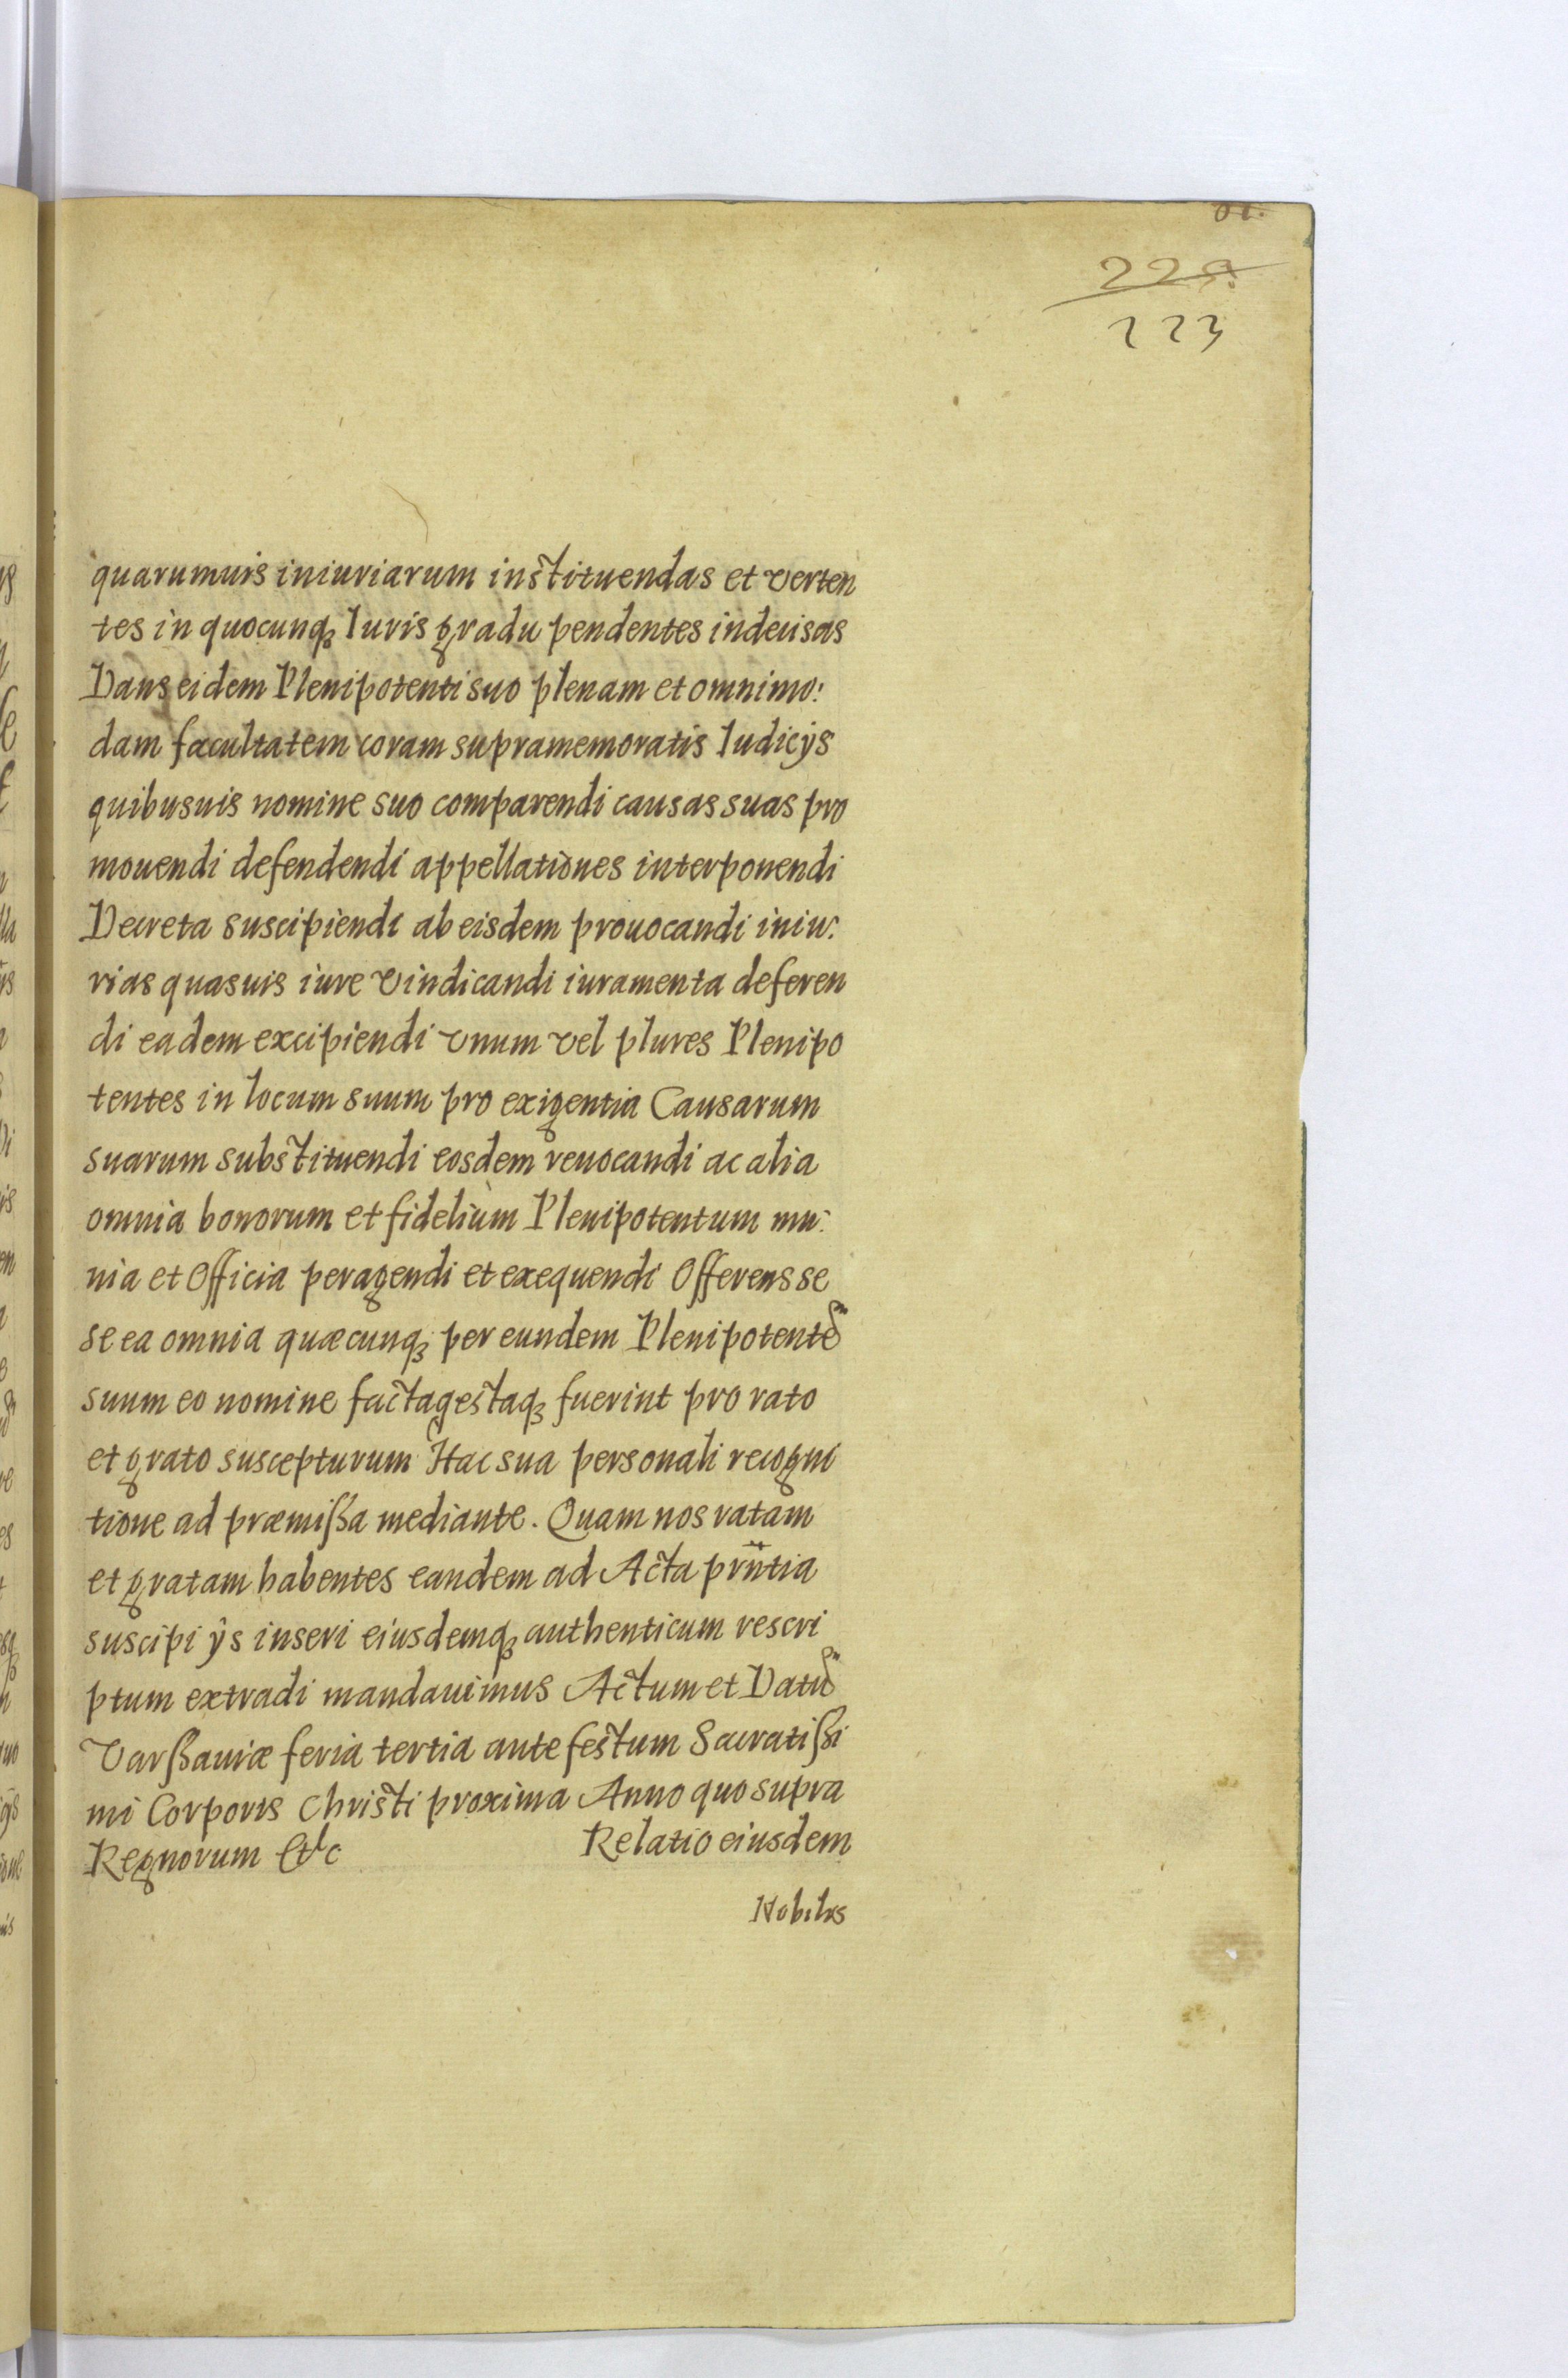 223
quarumuis iniuriarum instituendas et verten
tes in quocunqꝫ Iuris gradu pendentes indecisas
Dans eidem Plenipotenti suo plenam et omnimo:
dam facultatem coram supramemoratis Iudicÿs
quibusuis nomine suo comparendi causas suas pro
mouendi defendendi appellationes interponendi
Decreta suscipiendi ab eisdem prouocandi iniu:
rias quasuis iure vindicandi iuramenta deferen
di eadem excipiendi vnum vel plures Plenipo
tentes in locum suum pro exigentia Causarum
suarum substituendi eosdem reuocandi ac alia
omnia bonorum et fidelium Plenipotentum mu:
nia et Officia peragendi et exequendi Offerens se
se ea omnia quæcunqꝫ per eundem Plenipotentẽ
suum eo nomine facta gestaqꝫ fuerint pro rato
et grato suscepturum Hac sua personali recogni
tione ad præmißa mediante. Quam nos ratam
et gratam habentes eandem ad Acta prñtia
suscipi ÿs inseri eiusdemqꝫ authenticum rescri
ptum extradi mandauimus Actum et Datũ
Varßauiæ feria tertia ante festum Sacratißi
mi Corporis Christi proxima Anno quo supra
Regnorum Etc Relatio eiusdem
Nobilis